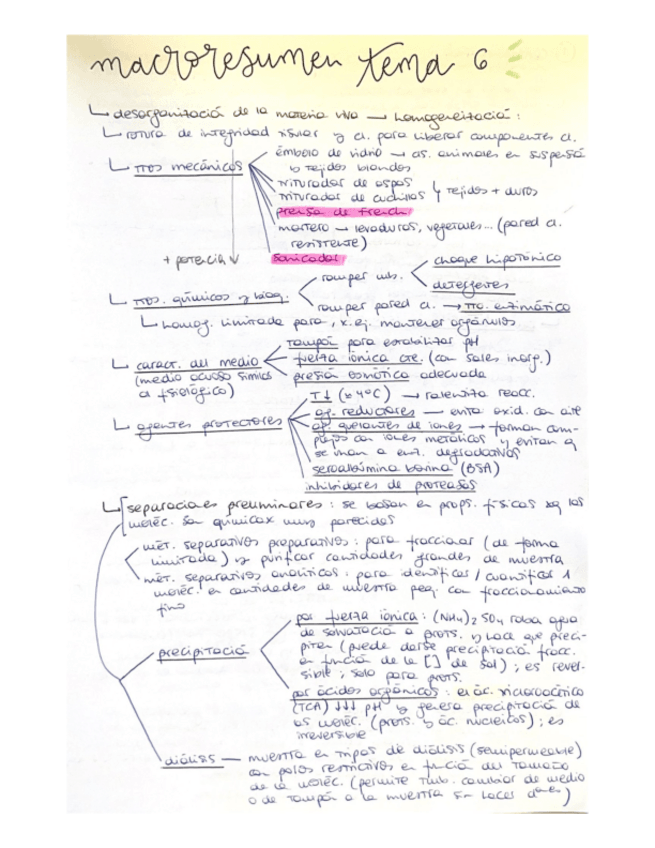 macroresumen tema 6
↳ desorganización de la materia viva → homogeneización:
↳ rotura de integridad tisular y cl. para liberar componentes cl.
↳ ttos mecánicos
émbolo de vidrio → cs. animales en suspensión
o tejidos blandos
triturador de aspas
triturador de cuchillas ↳ tejidos + duros
prensa de French
mortero → levaduras, vegetales... (pared cl.
resistente)
+ potencia ↓
sonicador
↳ ttos. químicos y bioq.
romper mb.
choque hipotónico
detergentes
romper pared cl. → tto. enzimático
↳ homog. limitada para, x. ej. mantener orgánulos
↳ caract. del medio
(medio acuoso similar
al fisiológico)
tampón para estabilizar pH
fuerza iónica cte. (con sales inorg.)
presión osmótica adecuada
↳ agentes protectores
T↓ (4ºC) → ralentiza reacc.
ag. reductores — evita oxid. con aire
ag. quelantes de iones → forman com-
plejos con iones metálicos y evitan q
se unan a enz. degradativos
seroalbúmina bovina (BSA)
inhibidores de proteasas
↳ separaciones preliminares: se basan en props. físicas xq las
moléc. son químicax muy parecidas
mét. separativos preparativos: para fraccionar (de forma
limitada) y purificar cantidades grandes de muestra
mét. separativos analíticos: para identificar / cuantificar 1
moléc. en cantidades de muestra peq. con fraccionamiento
fino
precipitación
por fuerza iónica: (NH4)2 SO4 roba agua
de solvatación a prots. y hace que preci-
piten (puede darse precipitación fracc.
en función de la [] de sal); es rever-
sible; solo para prots.
por ácidos orgánicos: el ác. tricloroacético
(TCA) ↓↓↓ pH y genera precipitación de
las moléc. (prots. y ác. nucleicos); es
irreversible
diálisis — muestra en tripas de diálisis (semipermeable)
con poros restrictivos en función del tamaño
de la moléc. (permite tmb. cambiar de medio
o de tampón a la muestra sin hacer